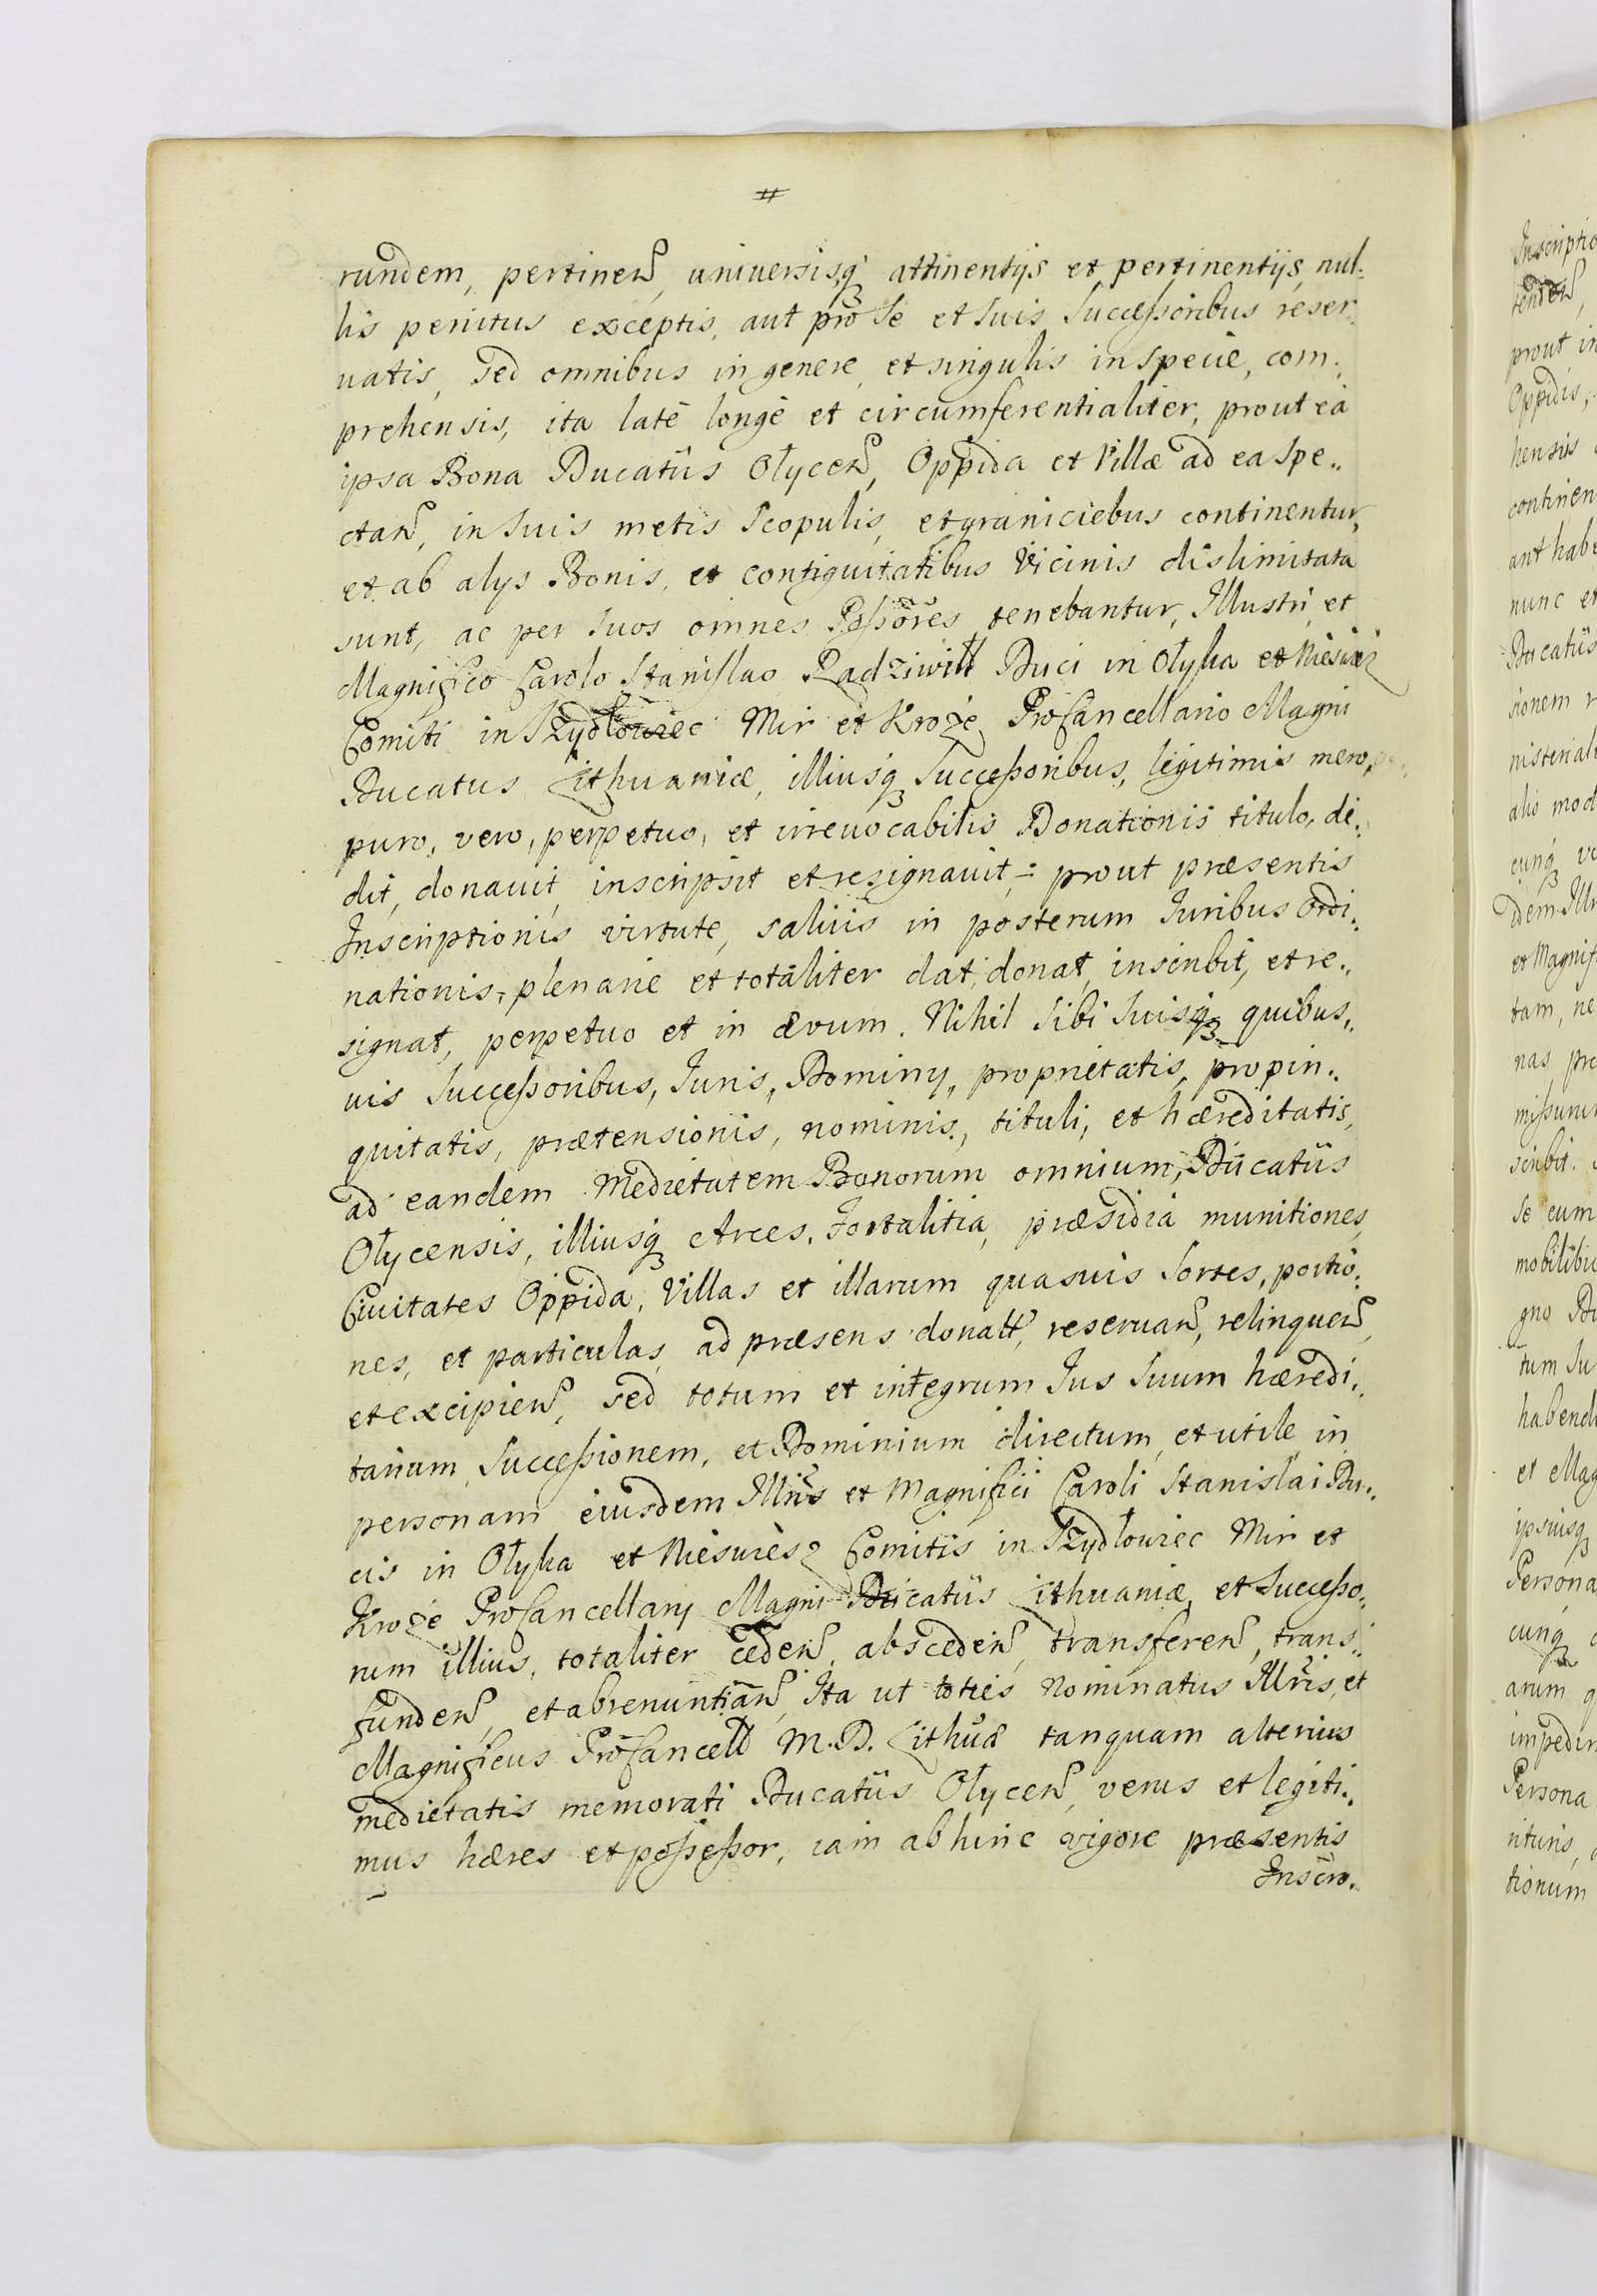 #
rundem, pertineñ, uniuersisq attinentijs et pertinentijs, nul:
lis penitus exceptis, aut pro se et suis Successoribus reser:
uatis, sed omnibus in genere, et singulis in Specie, com:
prehensis, ita latè longè et circumferentialiter, prout ea
ipsa Bona Ducatûs Olyceñ, Oppida et Villæ ad ea Spe:
ctañ, in suis metis Scopulis, et graniciebus continentur,
et ab alys Bonis, et contiguitatibus Vicinis dislimitata
sunt, ac per suos omnes Possores tenebantur, Illustri et
Magnifico Carolo Stanislao Radziwiłł Duci in Ołyka et Nieswiez
Comiti in Szydłowiec Mir et Kroże, ProCancellario Magni
Ducatus Lithuaniæ, illiusq Successoribus, legitimis mero,
puro, vero, perpetuo, et irreuocabilis Donationis titulo, de:
dit, donauit, inscripsit et resignauit,: prout præsentis
Inscriptionis virtute, saluis in posterum Iuribus Ordi:
nationis, plenarie et totaliter dat, donat, inscribit, et re:
signat, perpetuo et in ævum. Nihil sibi suisq quibus:
uis Successoribus, Iuris, Dominy, proprietatis, propin:
quitatis, prætensionis, nominis, tituli, et hæreditatis,
ad eandem Medietatem Bonorum omnium, Ducatûs
Olycensis, illiusq Arces, Fortalitia, præsidia munitiones,
Ciuitates Oppida, Villas et illarum quasuis Sortes, portio:
nes, et particulas, ad præsens donatt, reseruañ, relinqueñ,
et excipieñ, sed totum et integrum Ius Suum hæredi:
tarium, Successionem, et Dominium directum, et utile in
personam eiusdem Illris et Magnifici Caroli Stanislai Du:
cis in Ołyka et Nieswiesz Comitis in Szydłowiec Mir et
Kroże ProCancellary Magni Ducatûs Lithuaniæ, et Successo:
rum illius, totaliter cedeñ, abscedeñ, transfereñ, trans:
fundeñ, et abrenuntiañ, Ita ut toties Nominatus Illris, et
Magnificus ProCancell M.D. Lithuæ tanquam alterius
medietatis memorati Ducatûs Olyceñ, verus et legiti:
mus hæres et possessor, iam ab hinc vigore præsentis
Inscro.
Inscriptio
prout in
Oppidis,
hensis
continen
aut hab
nunc et
Ducatûs
sionem r
nisterial
alis mod
cunq
idem Ill
et Magnif
tam, ne
nas pro
missuru
scribit.
se eum
mobilibu
gno Du
tum Su
habend
et Mag
ipsiusq
Persona
cunq
arum q
impedin
Persona
rituris,
tionum